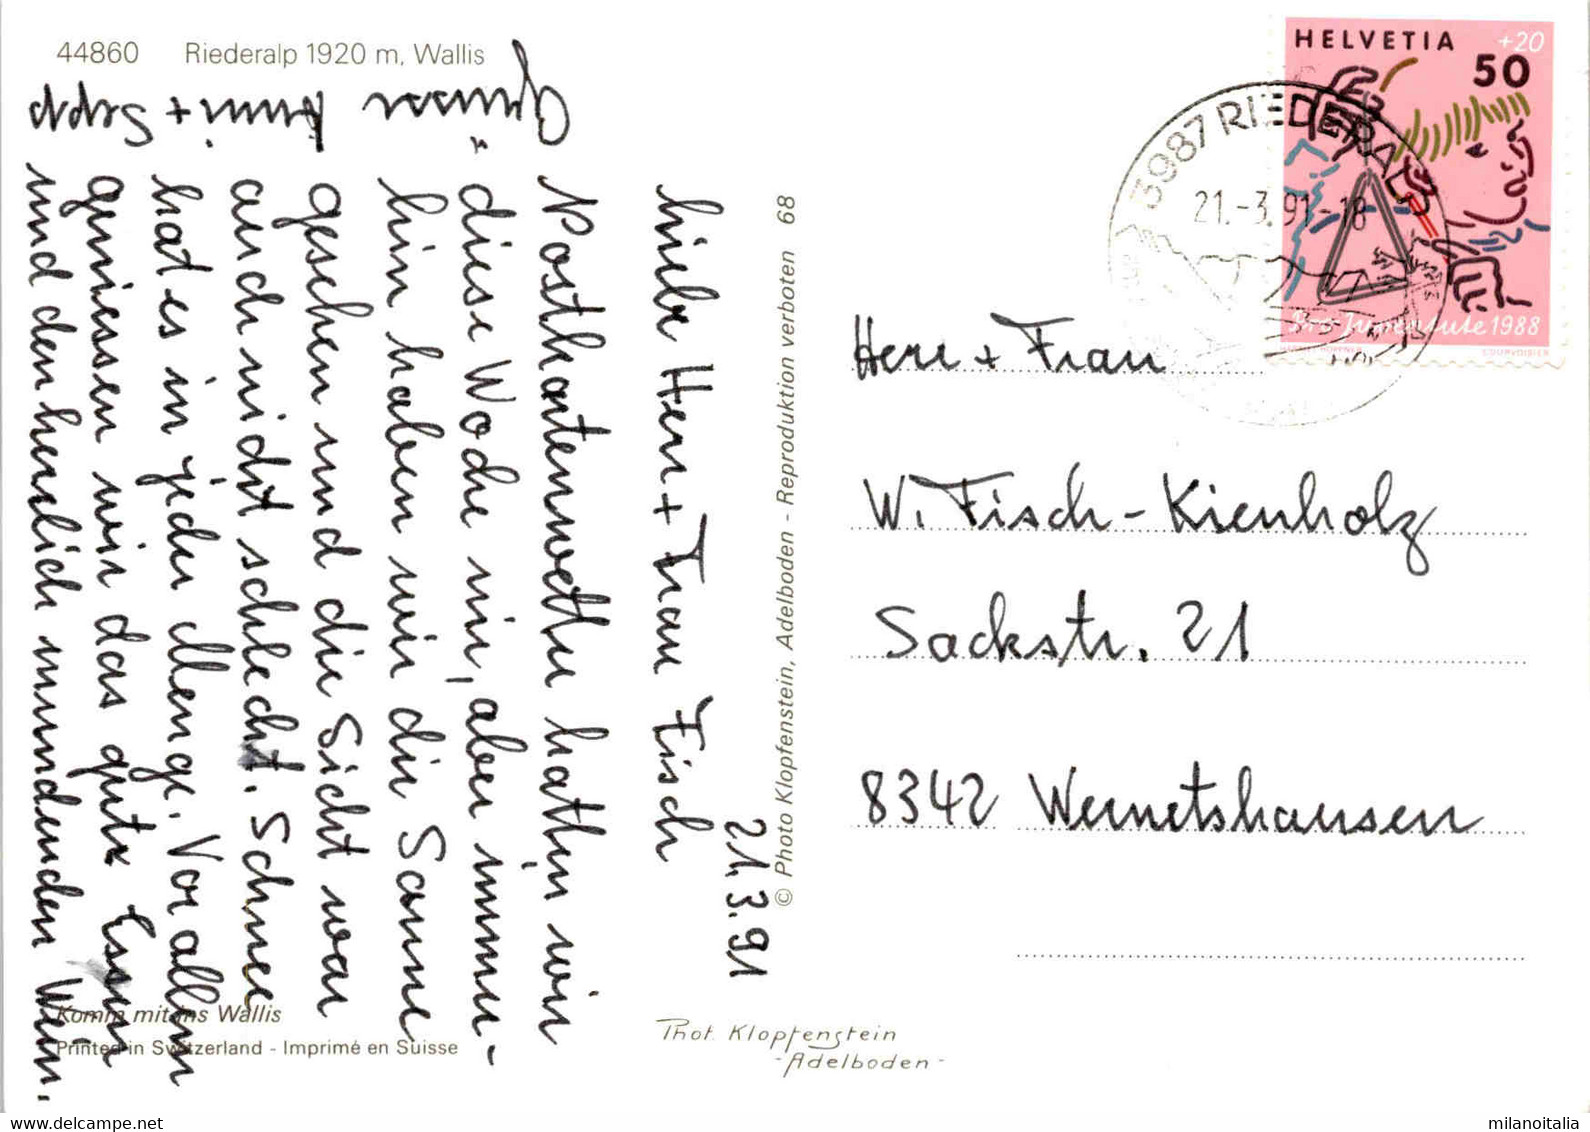 44860 Riederalp 1920 m, Wallis
21.3.91
Liebe Herr + Frau Fisch
Postkartenwetter hatten wir
diese Woche nie, aber immer-
hin haben wir die Sonne
gesehen und die Sicht war
auch nicht schlecht. Schnee
hat es in jeder Menge. Vor allem
geniessen wir das gute Essen
und den herrlich mundenden Wein.
Grüsse Anni + Sepp
Komm mit ins Wallis
Printed in Switzerland - Imprimé en Suisse
© Photo Klopfenstein, Adelboden - Reproduktion verboten 68
Phot. Klopfenstein
- Adelboden -
HELVETIA +20
50
Pro Juventute 1988
COURVOISIER
3987 RIEDERALP
21.-3.91-18
Herr + Frau
W. Fisch-Kienholz
Sackstr. 21
8342 Wernetshausen
www.delcampe.net
milanoitalia